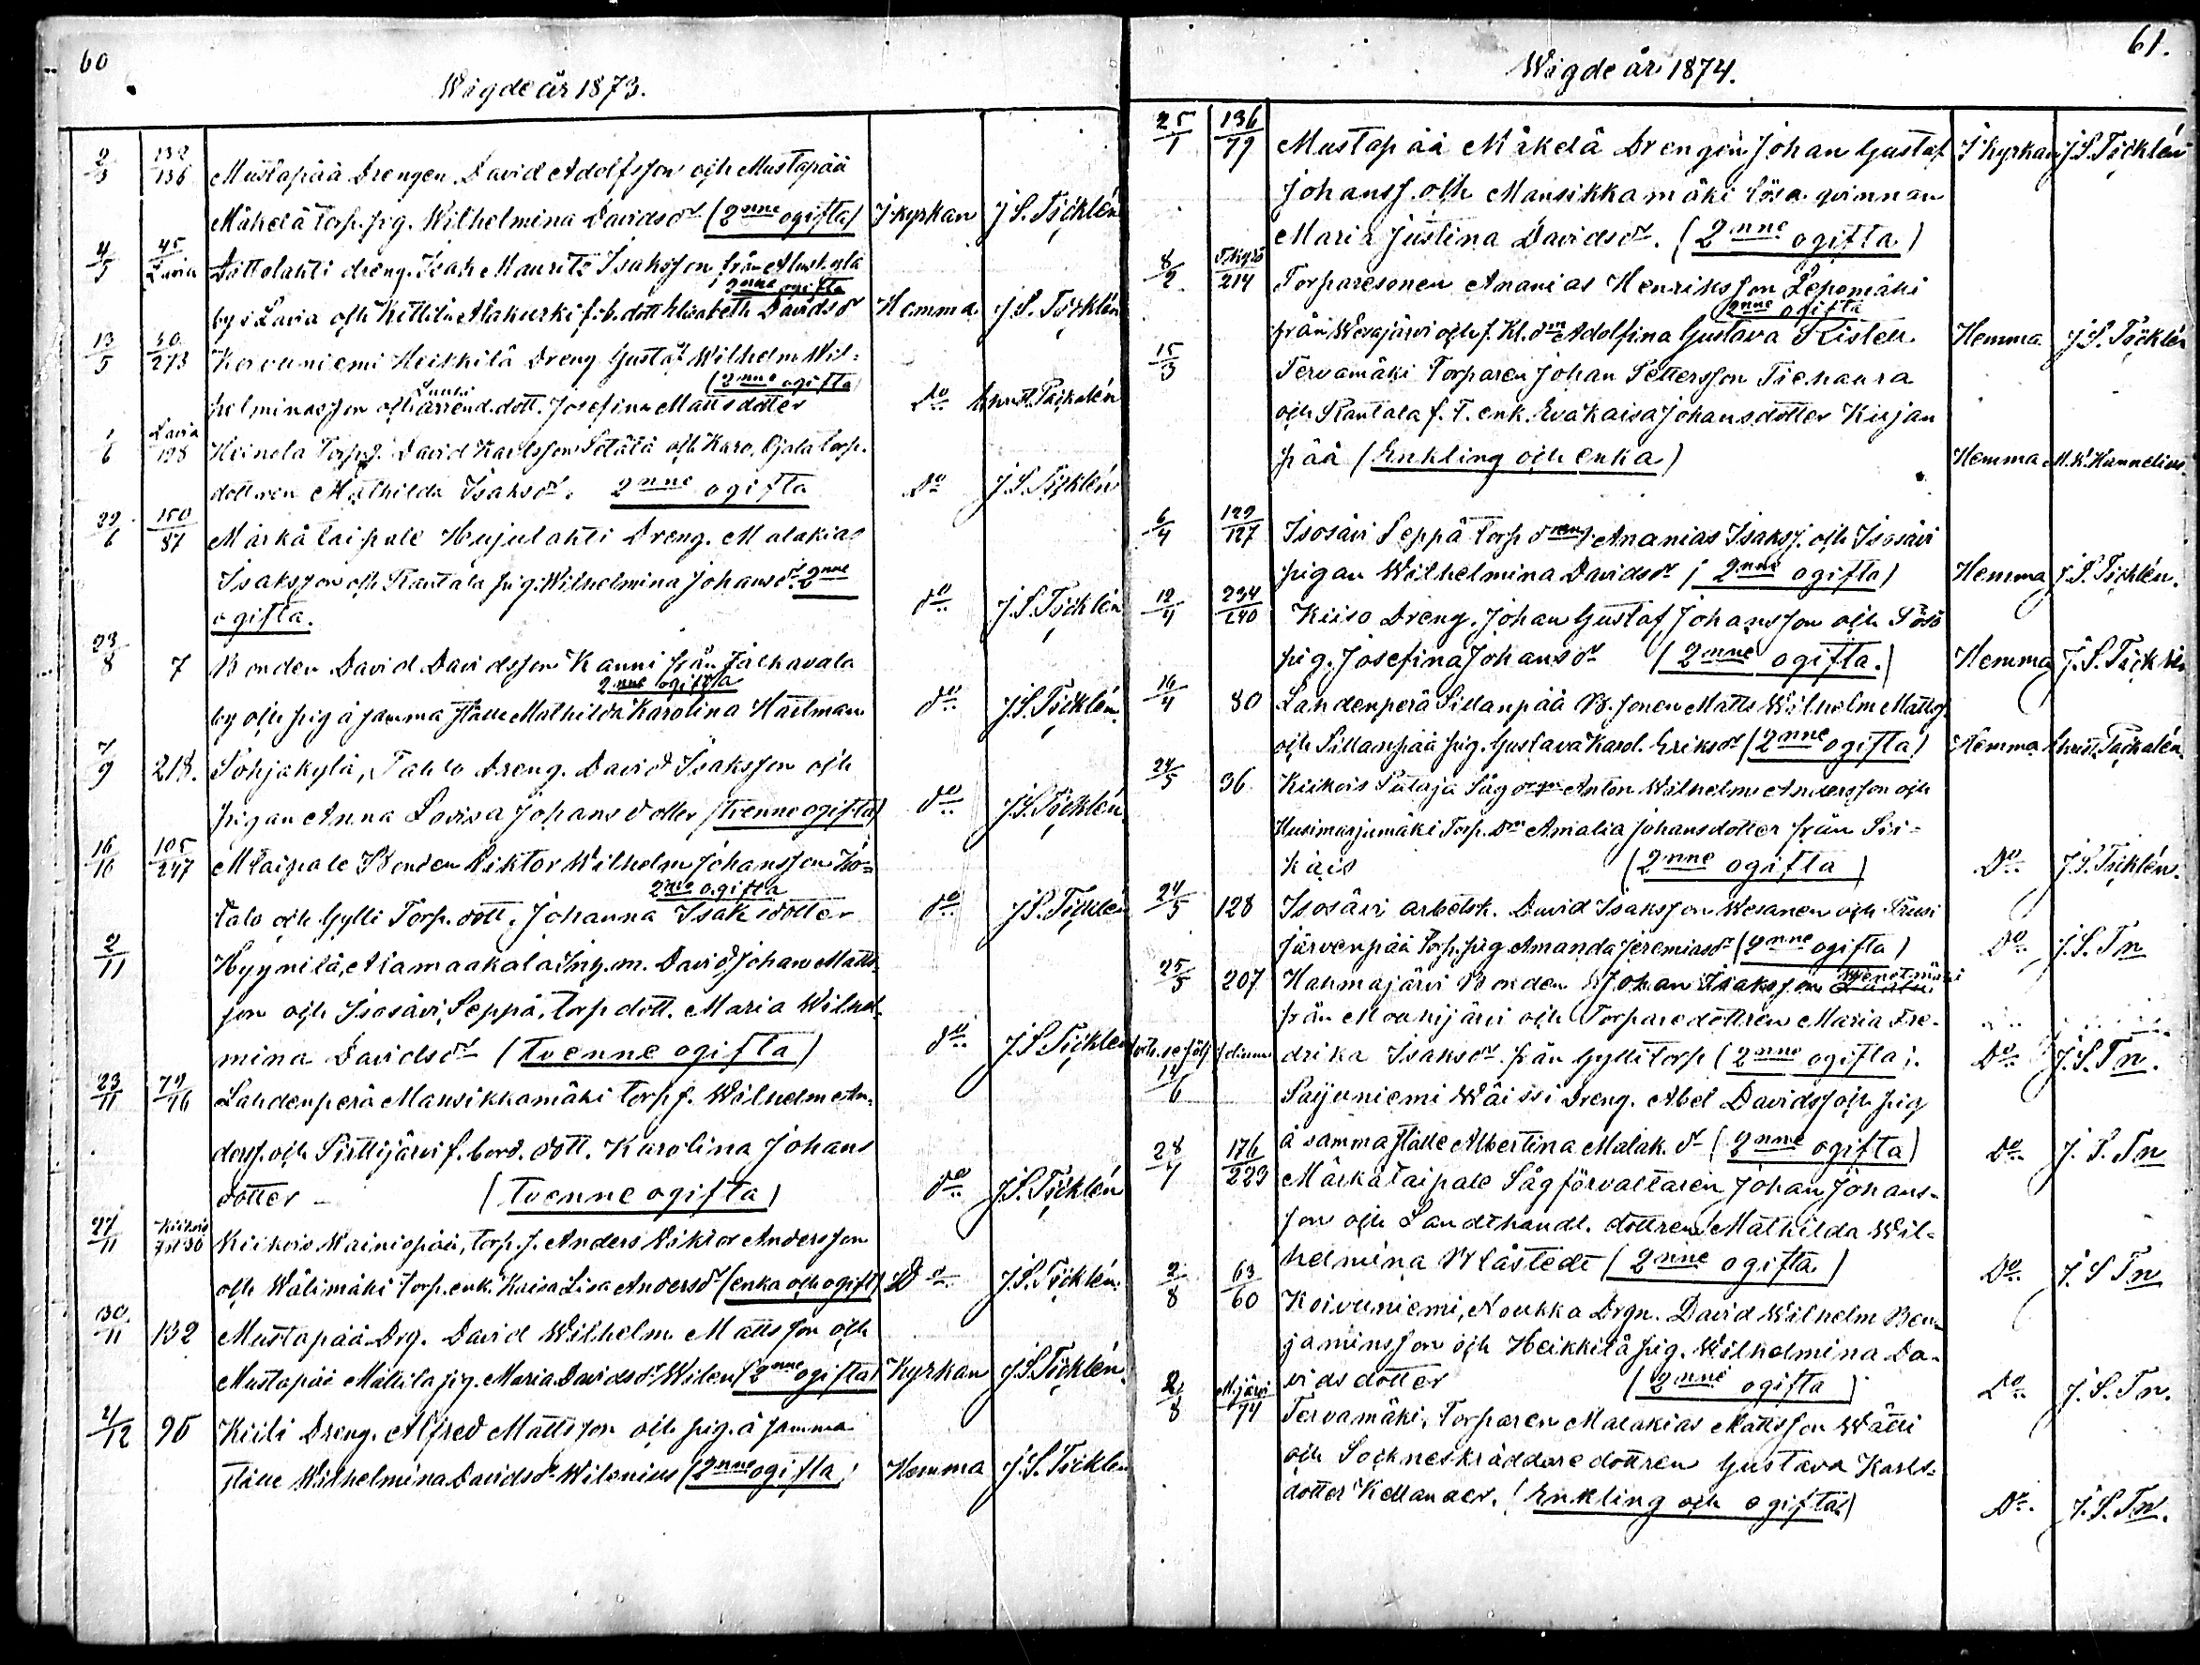 60
Wigde år 1873.
2/3 132/136 Mustapää Drengen David Adolfsson och Mustapää
Mäkelä torp. pig. Wilhelmina Davidsdr (2nne ogifta) I kyrkan J. S. Tschklén
4/5 45 Lavia Dottolahti dräng. Isak Maurits Isaksson från
by i Lavia och Kittilä Alakurki f. b. dott Elisabeth Davidsdr 2nne ogifta Hemma J. S. Tschklén
13/5 60/273 Korvuniemi Heikkilä Dreng Gustaf Wilhelm Wil-
helminasson och arrend. dott. Josefina Mattsdotter (2nne ogifta) Do
1/6 Lavia 198 Heinola Torp. David Karlsson Setälä och Karo, Ojala torp.
dottren Mathilda Isaksdr. 2nne ogifta Do J. S. Tschklén
29/6 150/87 Märkätaipale Hujulahti Dreng. Malakias
Isaksson och Rantala pig. Wilhelmina Johansdr. 2nne
ogifta. do J. S. Tschklén
23/8 7 Bonden David Davidsson Kanni från Jalhavala
by och pig å samma ställe Mathilda Karolina Hartman 2nne ogifta do J. S. Tschklén
7/9 218. Pohjakylä, Tahlo Dreng. David Isaksson och
pigan Anna Lovisa Johansdotter (tvenne ogifta) do J. S. Tschklén
16/10 105/247 Mtaipale Bonden Viktor Wilhelm Johansson Iso-
talo och Gylli Torp. dott. Johanna Isaksdotter 2nne ogifta do J. S. Tschklén
2/11 Hyynilä, Alamaakala Inh. m. David Johan Matts-
son och Isosävi, Seppä, torp dott. Maria Wilhel-
mina Davidsdr (Tvenne ogifta) do J. S. Tschklén
23/11 79/76 Lahdenperä Mansikkamäki torp. f. Wilhelm An-
derss. och Pirttijärvi f. bond. dott. Karolina Johans
dotter - (Tvenne ogifta) do J. S. Tschklén
27/11 Kiikois Kiikois Wainiopää, torp. s. Anders Viktor Andersson
och Wälimäki torp. enk. Kaisa Lisa Andersdr (enka och ogift) Do J. S. Tschklén.
30/11 132 Mustapää Drg. David Wilhelm Mattsson och
Mustapää Mattila pig. Maria Davidsdr Wilen (2nne ogifta) Kyrkan J. S. Tschklén.
21/12 95 Kiili Dreng. Alfred Mattsson och pig. å samma
ställe Wilhelmina Davidsdr Wilenius (2nne ogifta) Hemma J. S. Tschklén
61.
Wigde år 1874.
25/1 136/79 Mustapää Mäkelä Drengen Johan Gustaf I kyrkan J. S. Tschklén
Johanss. och Mansikkamäki lösa qvinnan
Maria Justina Davidsdr. (2nne ogifta)
8/2 214 Torparesonen Ananias Henriksson Lepomäki
från Wesajärvi och f. Kl. dn Adolfina Gustava Kisten 2nne ogifta Hemma J. S. Tschklén
15/3 Tervamäki Torparen Johan Pettersson Tiehaara
och Rantala f. T. enk. Eva Kaisa Johansdotter Kirjan
pää (Enkling och enka) Hemma M. K. Hannelius.
6/4 129/127 Isosävi Seppä torp dreng. Ananias Isakss. och Isosävi
pigan Wilhelmina Davidsdr (2nne ogifta) Hemma J. S. Tschklén.
12/4 234/240 Kiiso Dreng. Johan Gustaf Johansson och Pösö
pig. Josefina Johansdr (2nne ogifta.) Hemma J. S. Tschklén
16/4 80 Lahdenperä Sillanpää B. sonen Matts Wilhelm Mattss.
och Sillanpää pig. Gustava Karol. Eriksdr (2nne ogifta) Hemma
24/5 36 Kiikois Putaja Såg Anton Wilhelm Andersson och
Kusimarjumäki Torp. Dn Amalia Johansdotter från Sii-
kais (2nne ogifta) Do J. S. Tschklén.
24/5 128 Isosävi arbetsk. David Isaksson Wesanen och
järvenpää Torp. pig Amanda Jeremiasdr (2nne ogifta) Do J. S. Tn
25/5 207 Hahmajärvi Bonden Johan Isaksson
från Mouhijärvi och Torparedottren Maria Fre-
drika Isaksdr från Gylli torp (2nne ogifta). Do J. S. Tn.
14/6 Saijuniemi Wäissi Dreng. Abel Davidss och pig
å samma ställe Albertina Malak. dr (2nne ogifta) Do J. S. Tn
28/4 176/223 Märkätaipale Sågförvaltaren Johan Johans-
son och Landthandl. dottren Mathilda Wil-
helmina Blåstedt (2nne ogifta) Do J. S. Tn
2/8 63/60 Koivuniemi, Noukka Drgn. David Wilhelm Ben-
jaminsson och Heikkilä pig. Wilhelmina Da-
vidsdotter (2nne ogifta) Do J. S. Tn.
2/8 Mjärvi 74 Tervamäki, Torparen Malakias Mattsson Wätti
och Sockneskräddaredottren Gustava Karls-
dotter Kellander. (Enkling och ogifta) Do. J. S. Tn.